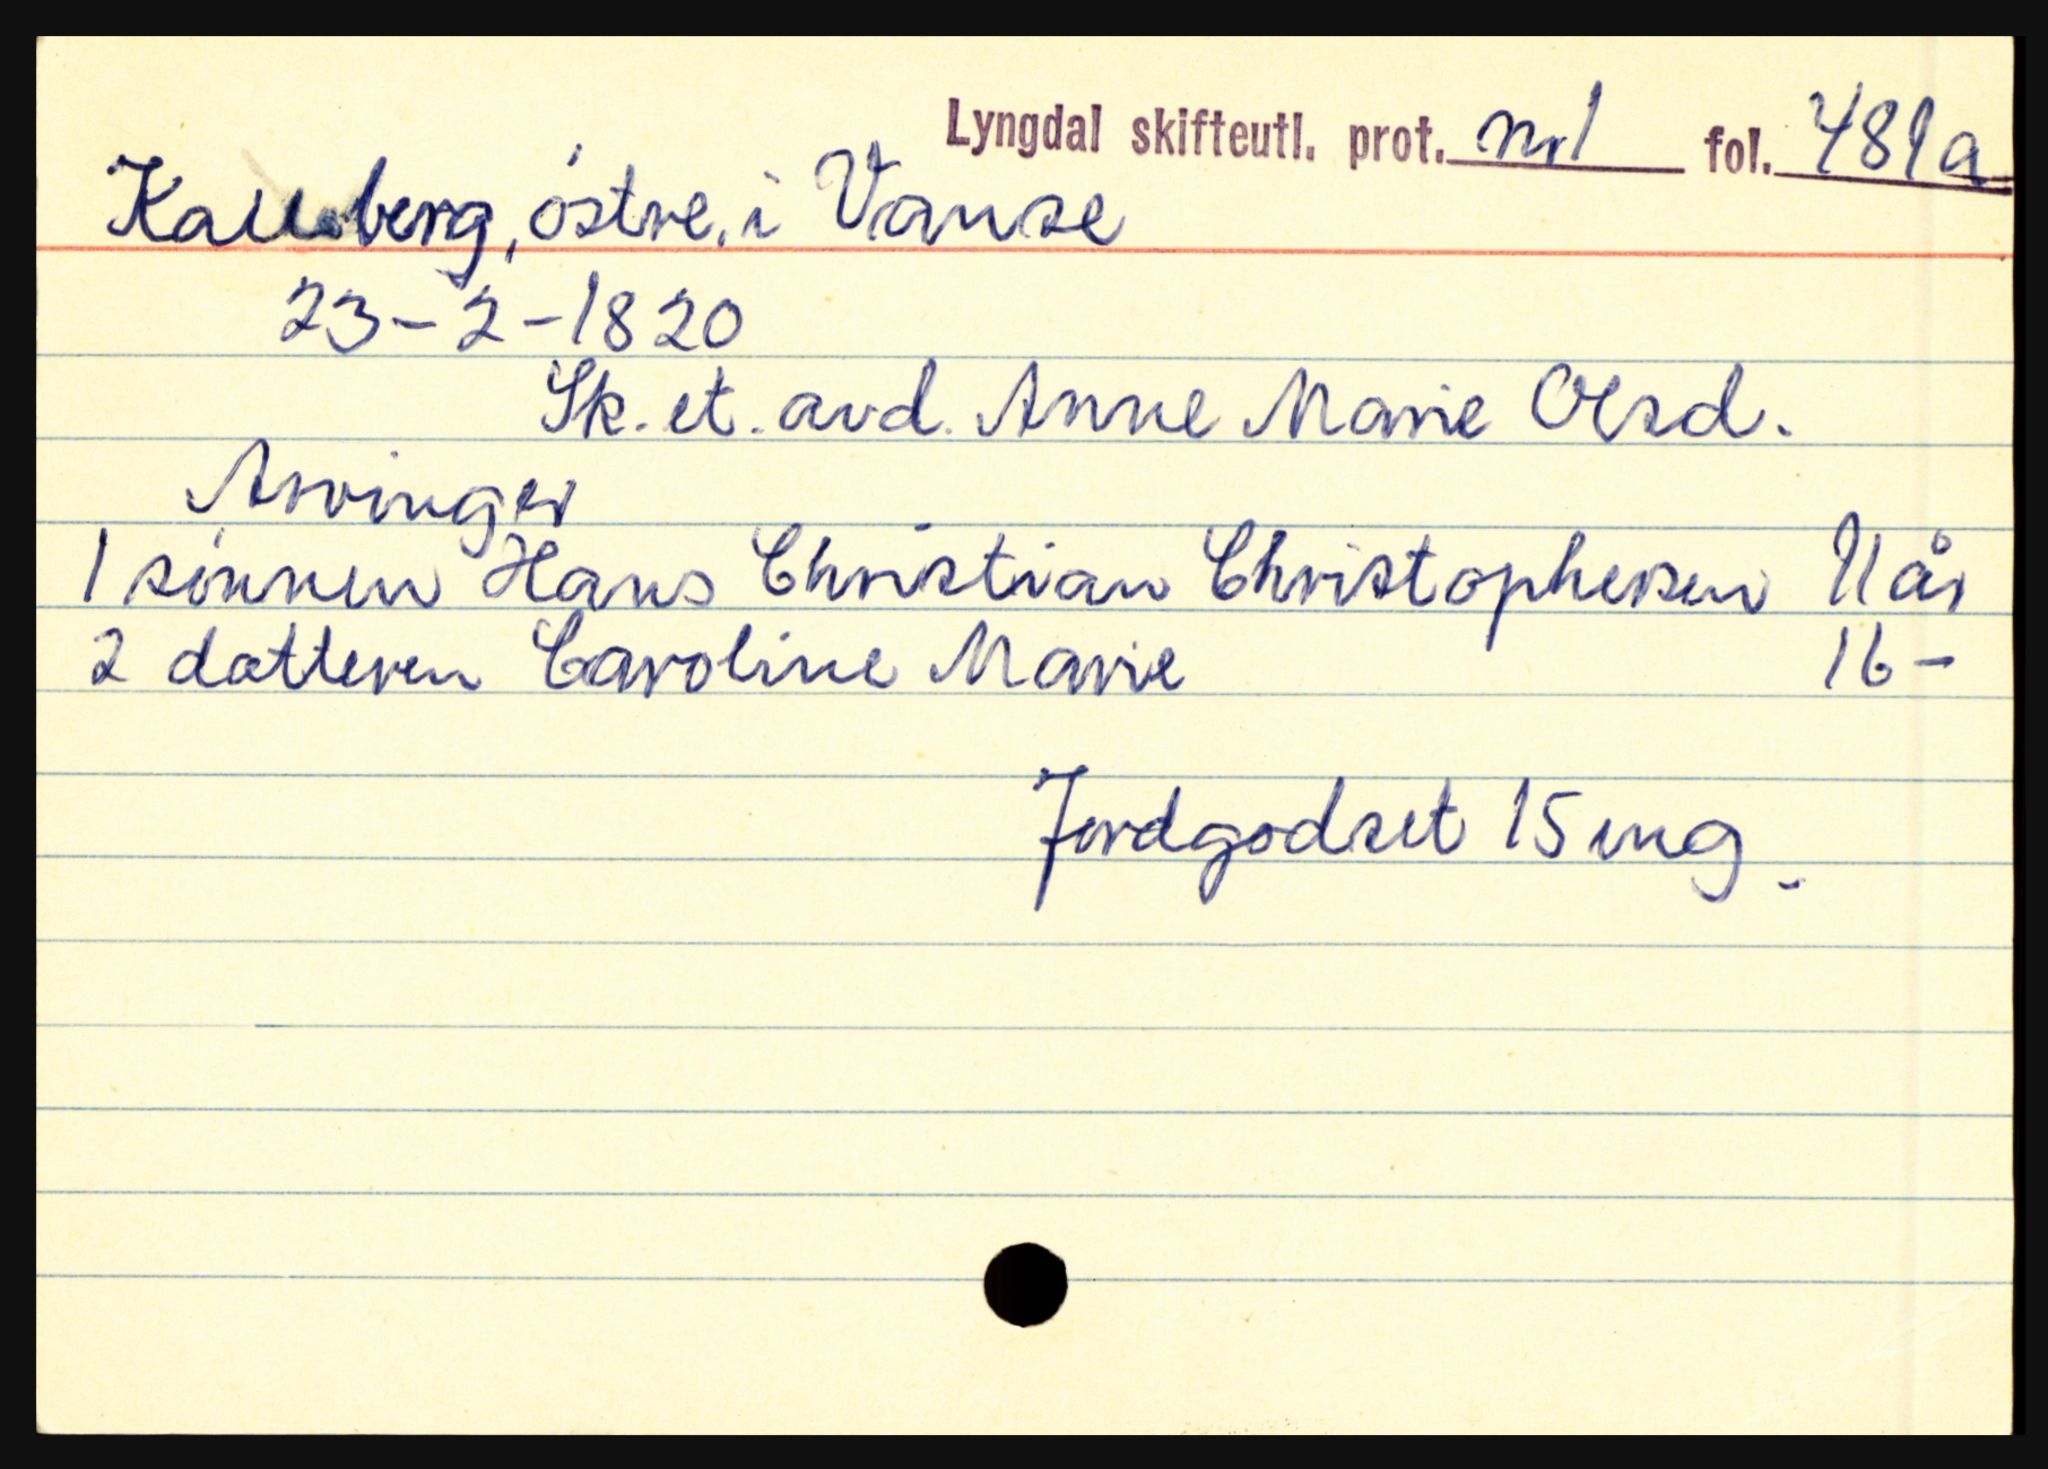 Lyngdal skifteutl. prot. nr 1 fol. 481a
Kalleberg, östre, i Vanse
23-2-1820
Sk. et. avd. Anne Marie Olsd.
Arvinger
1 sönnen Hans Christian Christophersen 11 år
2 datteren Caroline Marie 16 -
Jordgodset 15 mg.